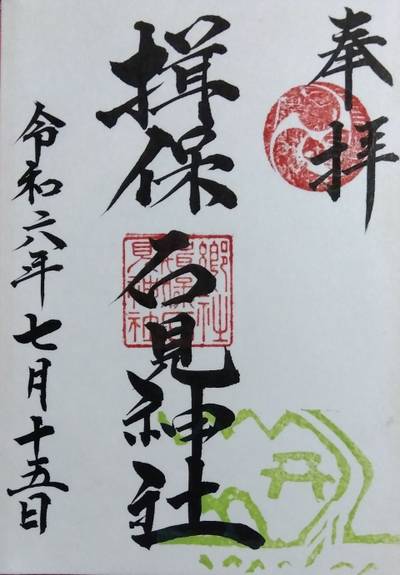 奉拝
揖保石見神社
郷社
揖保石
見神社
令和六年七月十五日